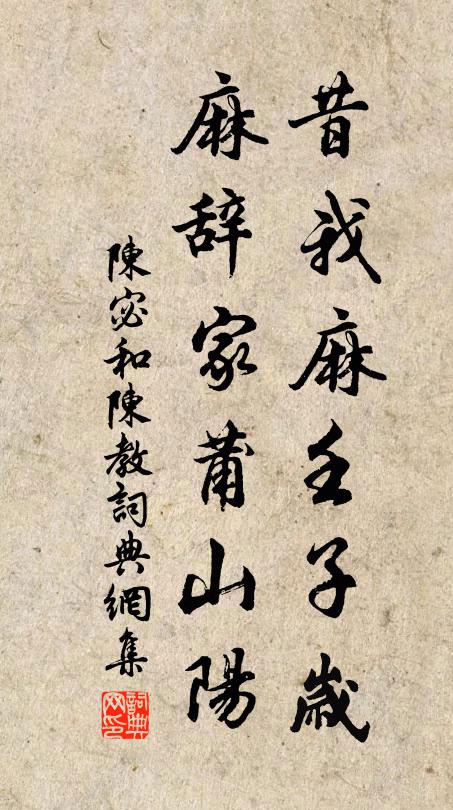 昔我麻壬子歲
麻辞家莆山陽
陳宓和陳教詞典網集
詞典网印